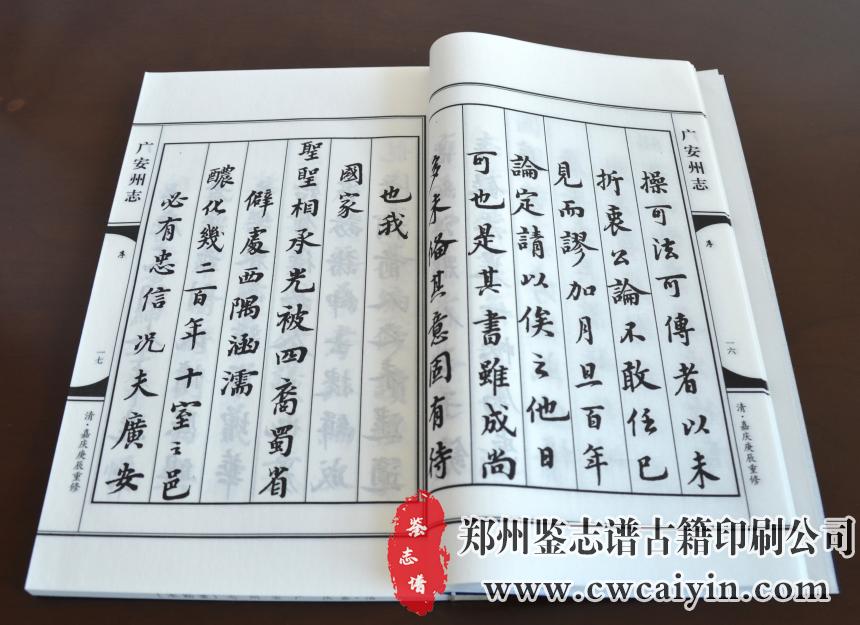 广安州志
序
一六
清·嘉庆庚辰重修
操可法可傳者以未
折衷公論不敢任已
見而謬加月旦百年
論定請以俟之他日
可也是其書雖成尚
多未備其意固有待
也我
國家
聖聖相承光被四裔蜀省
僻處西隅涵濡
醲化幾二百年十室之邑
必有忠信况夫廣安
广安州志
序
一七
清·嘉庆庚辰重修
鉴志谱
郑州鉴志谱古籍印刷公司
www.cwcaiyin.com